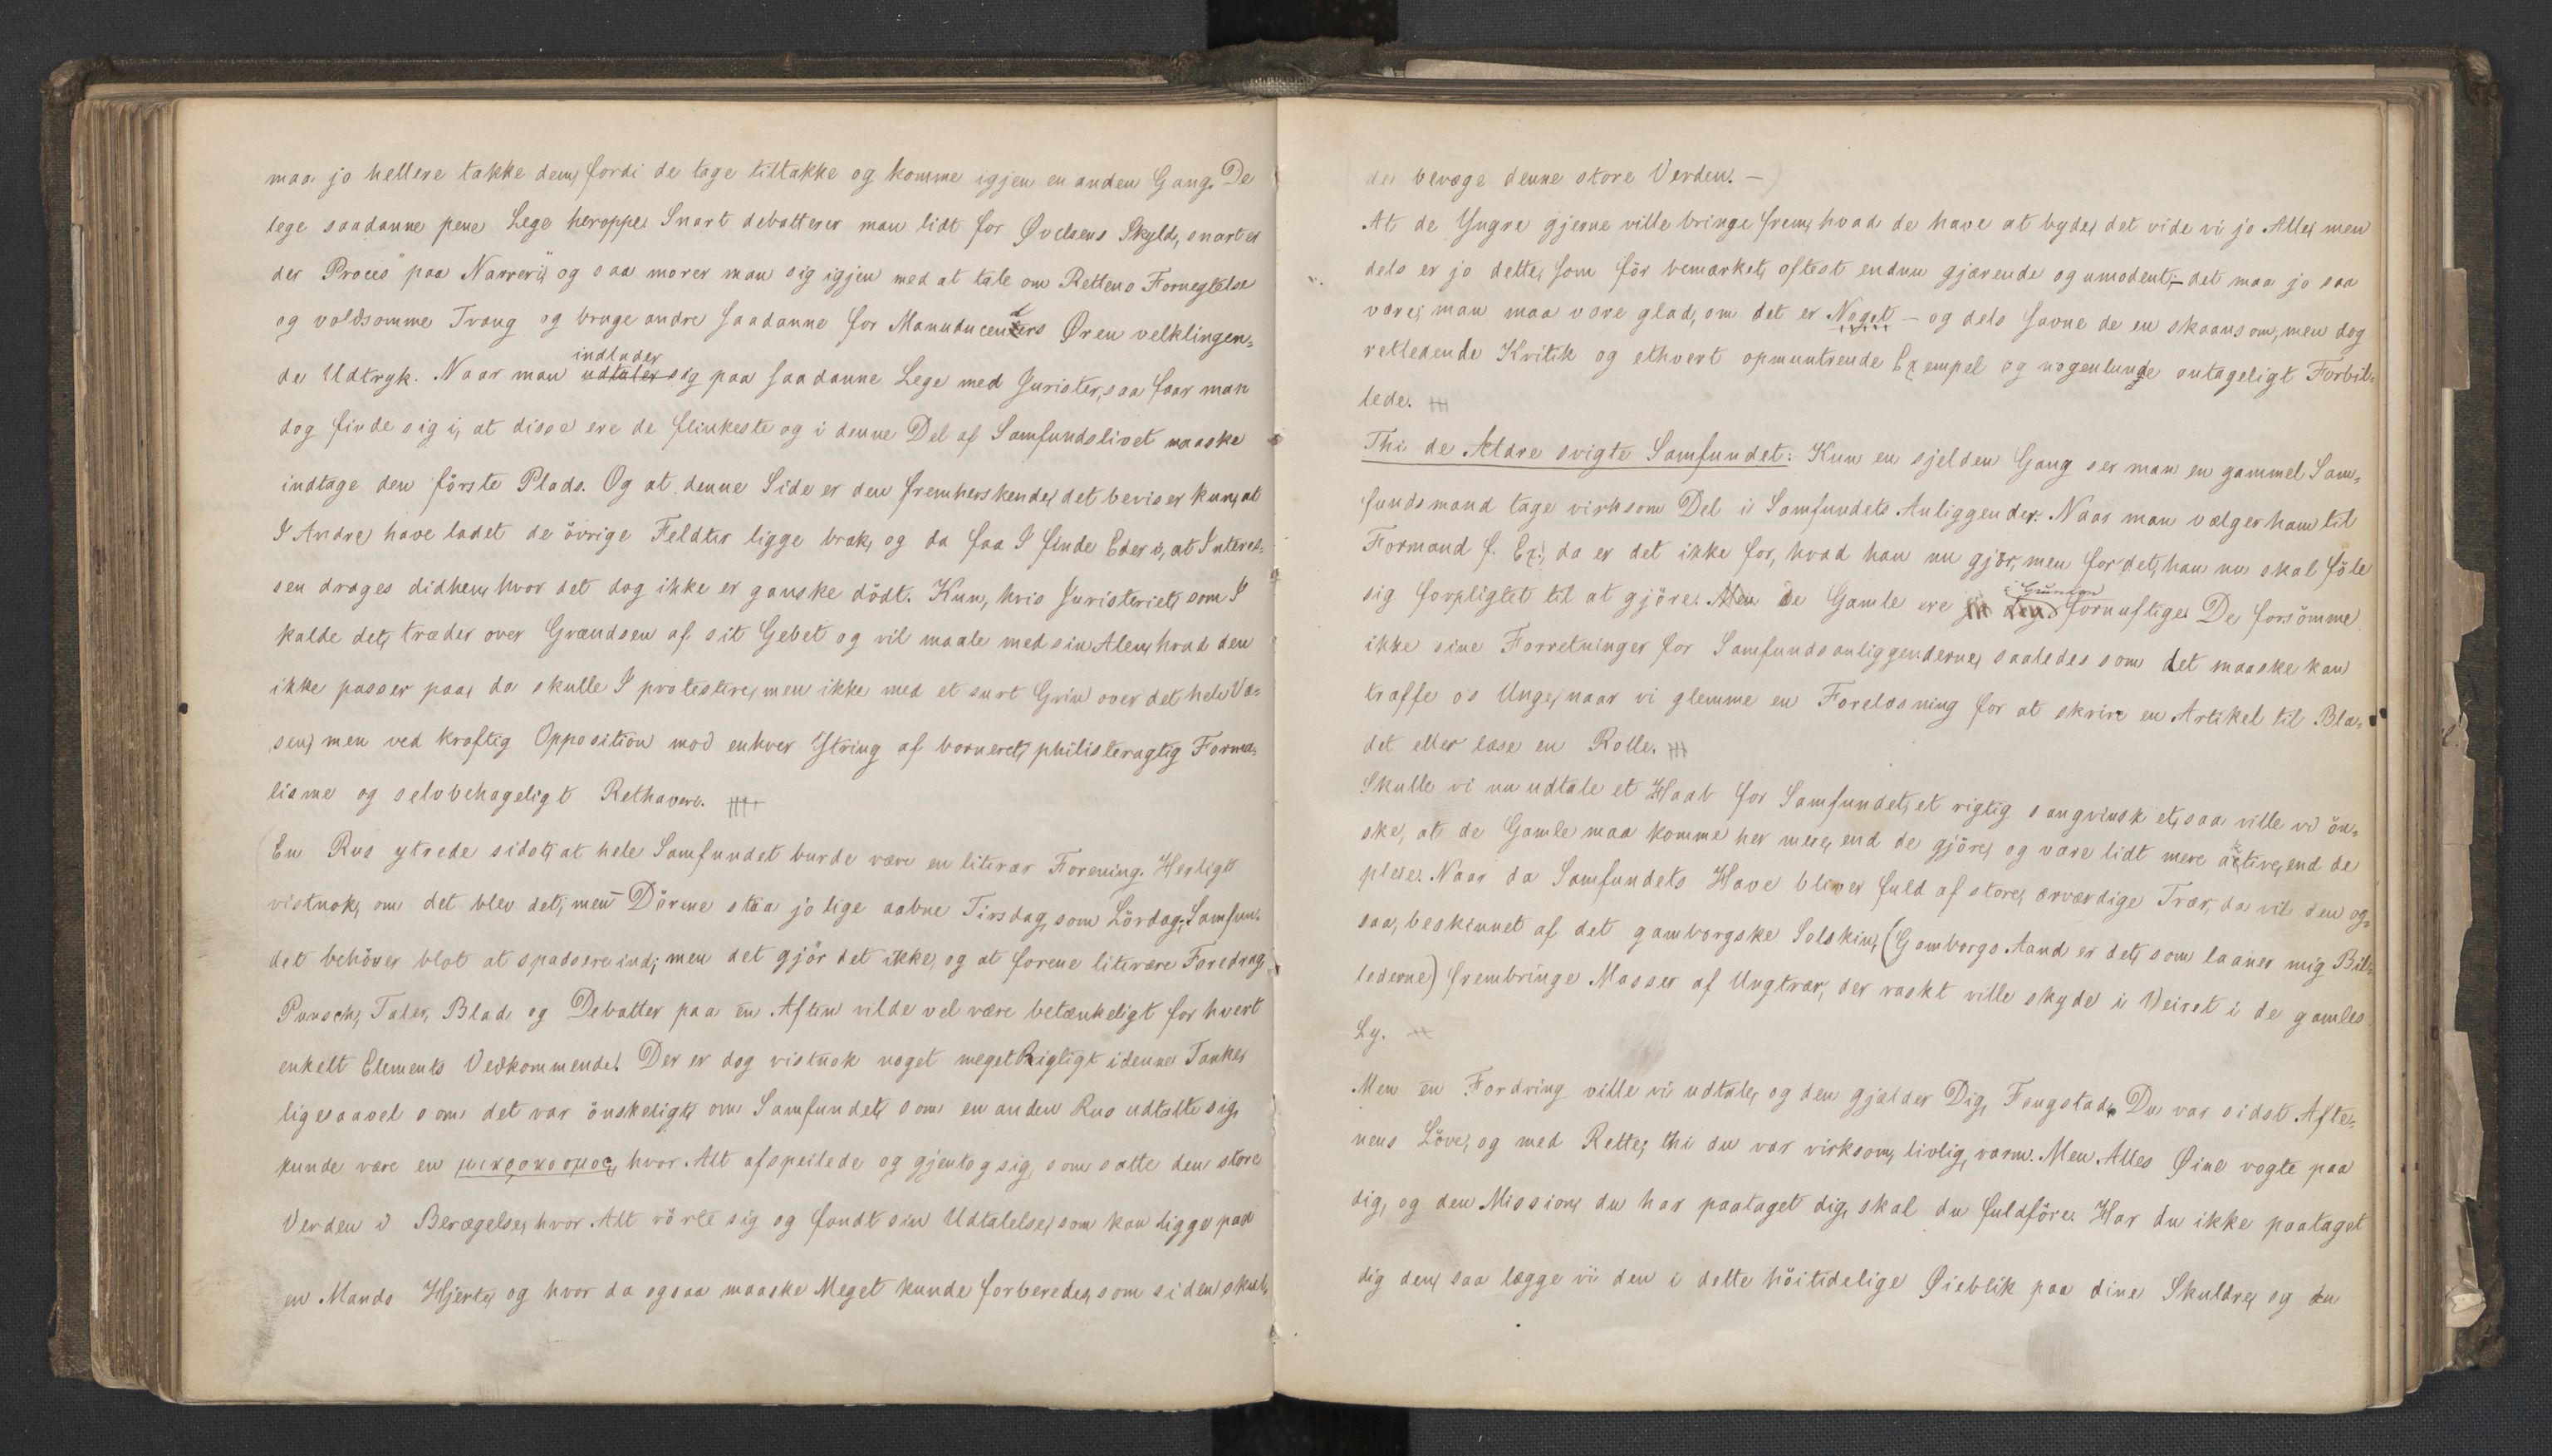 maa jo hellere takke dem, fordi de tage tiltakke og komme igjen en anden Gang. De
lege saadanne pene Lege heroppe. Snart debatterer man lidt for Øvelsens Skyld, snart er
der Proces "paa Narreri," og saa morer man sig igjen med at tale om Rettens Fornegtelse
og voldsomme Tvang og bruge andre saadanne for Manuducenders Øren velklingen-
de Udtryk. Naar man indlader sig paa saadanne Lege med Jurister, saa faar man
dog finde sig i, at disse ere de flinkeste og i denne Del af Samfundslivet maaske
indtage den förste Plads. Og at denne Side er den fremherskende, det beviser kun, at
I Andre have ladet de övrige Feldter ligge brak, og da faa I finde Eder i, at Interes-
sen drages didhen, hvor det dog ikke er ganske dödt. Kun, hvis Juristeriet, som I
kalde det, træder over Grændsen af sit Gebet og vil maale med sin Alen, hvad den
ikke passer paa, da skulle I protestere, men ikke med et surt Grin over det hele Væ-
sen, men ved kraftig Opposition mod enhver Ytring af borneret, philisteragtig Forma-
lisme og selvbehageligt Rethaveri.
En Rus ytrede sidst, at hele Samfundet burde være en literær Forening. Herligt
vistnok, om det blev det, men Dörene staa jo lige aabne Tirsdag, som Lördag, Samfun-
det behöver blot at spadsere ind; men det gjör det ikke, og at forene literære Foredrag,
Punsch, Taler, Blad og Debatter paa en Aften vilde vel være betænkeligt for hvert
enkelt Elements Vedkommende. Der er dog vistnok noget meget Rigtigt i denne Tanke,
ligesaavel som det var önskeligt, om Samfundet, som en anden Rus udtalte sig,
kunde være en μικροκοσμος, hvor Alt afspeilede og gjentog sig, som satte den store
Verden i Bevægelse, hvor Alt rörte sig og fandt sin Udtalelse, som kan ligge paa
en Mands Hjerte, og hvor da ogsaa maaske Meget kunde forberedes, som siden skul-
de bevæge denne store Verden. —
At de Yngre gjerne ville bringe frem, hvad de have at byde, det vide vi jo Alle, men
dels er jo dette, som för bemærket, oftest endnu gjærende og umodent; — det maa jo saa
være; man maa være glad, om det er Noget — og dels savne de en skaansom, men dog
retledende Kritik og ethvert opmuntrende Exempel og nogenlunde antageligt Forbil-
lede.
Thi de Ældre svigte Samfundet. Kun en sjelden Gang ser man en gammel Sam-
fundsmand tage virksom Del i Samfundets Anliggender. Naar man vælger ham til
Formand f. Ex., da er det ikke for, hvad han nu gjör, men for det, han nu skal föle
sig forpligtet til at gjöre. Men De Gamle ere jo i Grunden fornuftige. De forsömme
ikke sine Forretninger for Samfundsanliggenderne, saaledes som det maaske kan
træffe os Unge, naar vi glemme en Forelæsning for at skrive en Artikel til Bla-
det eller læse en Rolle.
Skulle vi nu udtale et Haab for Samfundet, et rigtig sangvinsk et, saa ville vi ön-
ske, at de Gamle maa komme her mere, end de gjöre, og være lidt mere aktive, end de
pleie. Naar da Samfundets Have bliver fuld af store, ærværdige Trær, da vil den og-
saa, beskinnet af det gamborgske Solskin, (Gamborgs Aand er det, som laaner mig Bil-
lederne) frembringe Masser af Ungtrær, der raskt ville skyde i Veiret i de gamles
Ly.
Men en Fordring ville vi udtale, og den gjælder Dig, Fougstad. Du var sidst Afte-
nens Löve, og med Rette, thi du var virksom, livlig, varm. Men Alles Øine vogte paa
dig, og den Mission, du har paataget dig, skal du fuldföre. Har du ikke paataget
dig den, saa lægge vi den i dette höitidelige Øieblik paa dine Skuldre, og du